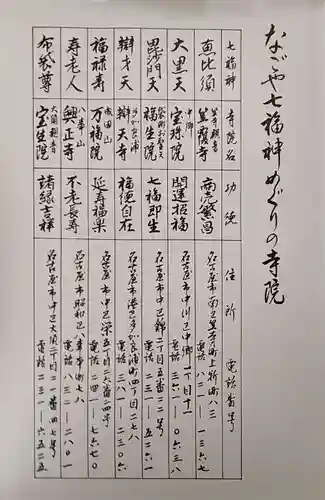 なごや七福神めぐりの寺院
七福神 寺院名 功徳 住所 電話番号
恵比須 笠寺観音 笠覆寺 商売繁昌 名古屋市南区笠寺町上新町八三
電話 八二一―一三六七
大黒天 中郷 宝珠院 開運招福 名古屋市中川区中郷一丁目十一
電話 三六一―〇六三八
毘沙門天 袋町お聖天 福生院 七福即生 名古屋市中区錦二丁目五番二二号
電話 二三一―五二六一
辯才天 多加良浦 辯天寺 福徳自在 名古屋市港区多加良浦町四丁目二七八
電話 三八一―二三〇六
福禄寿 成田山 万福院 延寿福楽 名古屋市中区栄五丁目二六番二四号
電話 二四一―七六七〇
寿老人 八事山 興正寺 不老長寿 名古屋市昭和区八事本町七八
電話 八三二―二八〇一
布袋尊 大須観音 宝生院 諸縁吉祥 名古屋市中区大須二丁目二一番四七号
電話 二三一―六五二五